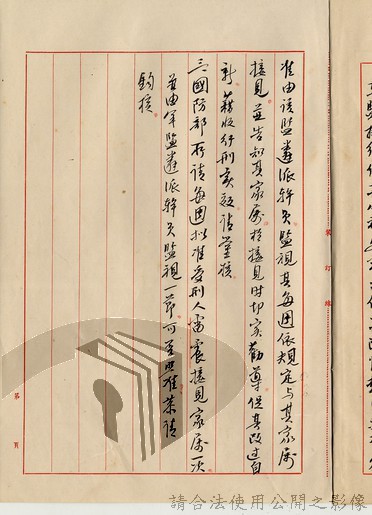 准由該監遴派幹員監視其每週依規定與其家屬
接見並告知其家屬於接見時切實勸導促其改過自
新藉收行刑實效請鑒核
三國防部所請每週擬准受刑人雷震接見家屬一次
並由軍監遴派幹員監視一節可否照准敬請
鈞核
裝訂線
第 頁
請合法使用公開之影像